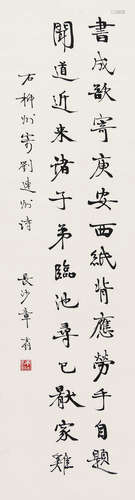 書成欲寄庾安西紙背應勞手自題
聞道近来諸子弟臨池尋已猒家雞
石柳州寄劉連州诗
長沙章